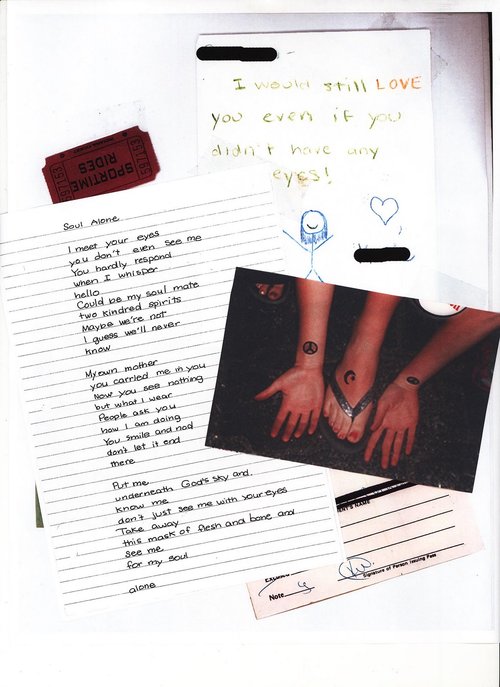 I would still LOVE
you even if you
didn't have any
eyes!
SPORTIME
RIDES
Soul Alone
I meet your eyes
you don't even see me
You hardly respond
when I whisper
hello
Could be my soul mate
two kindred spirits
Maybe we're not
I guess we'll never
know
My own mother
you carried me in you
Now you see nothing
but what I wear
People ask you
how I am doing
You smile and nod
don't let it end
there
Put me
underneath God's sky and,
know me
don't just see me with your eyes
Take away
this mask of flesh and bone and
see me
for my soul
alone
ENT'S NAME
Note
Signature of Person Issuing Pass